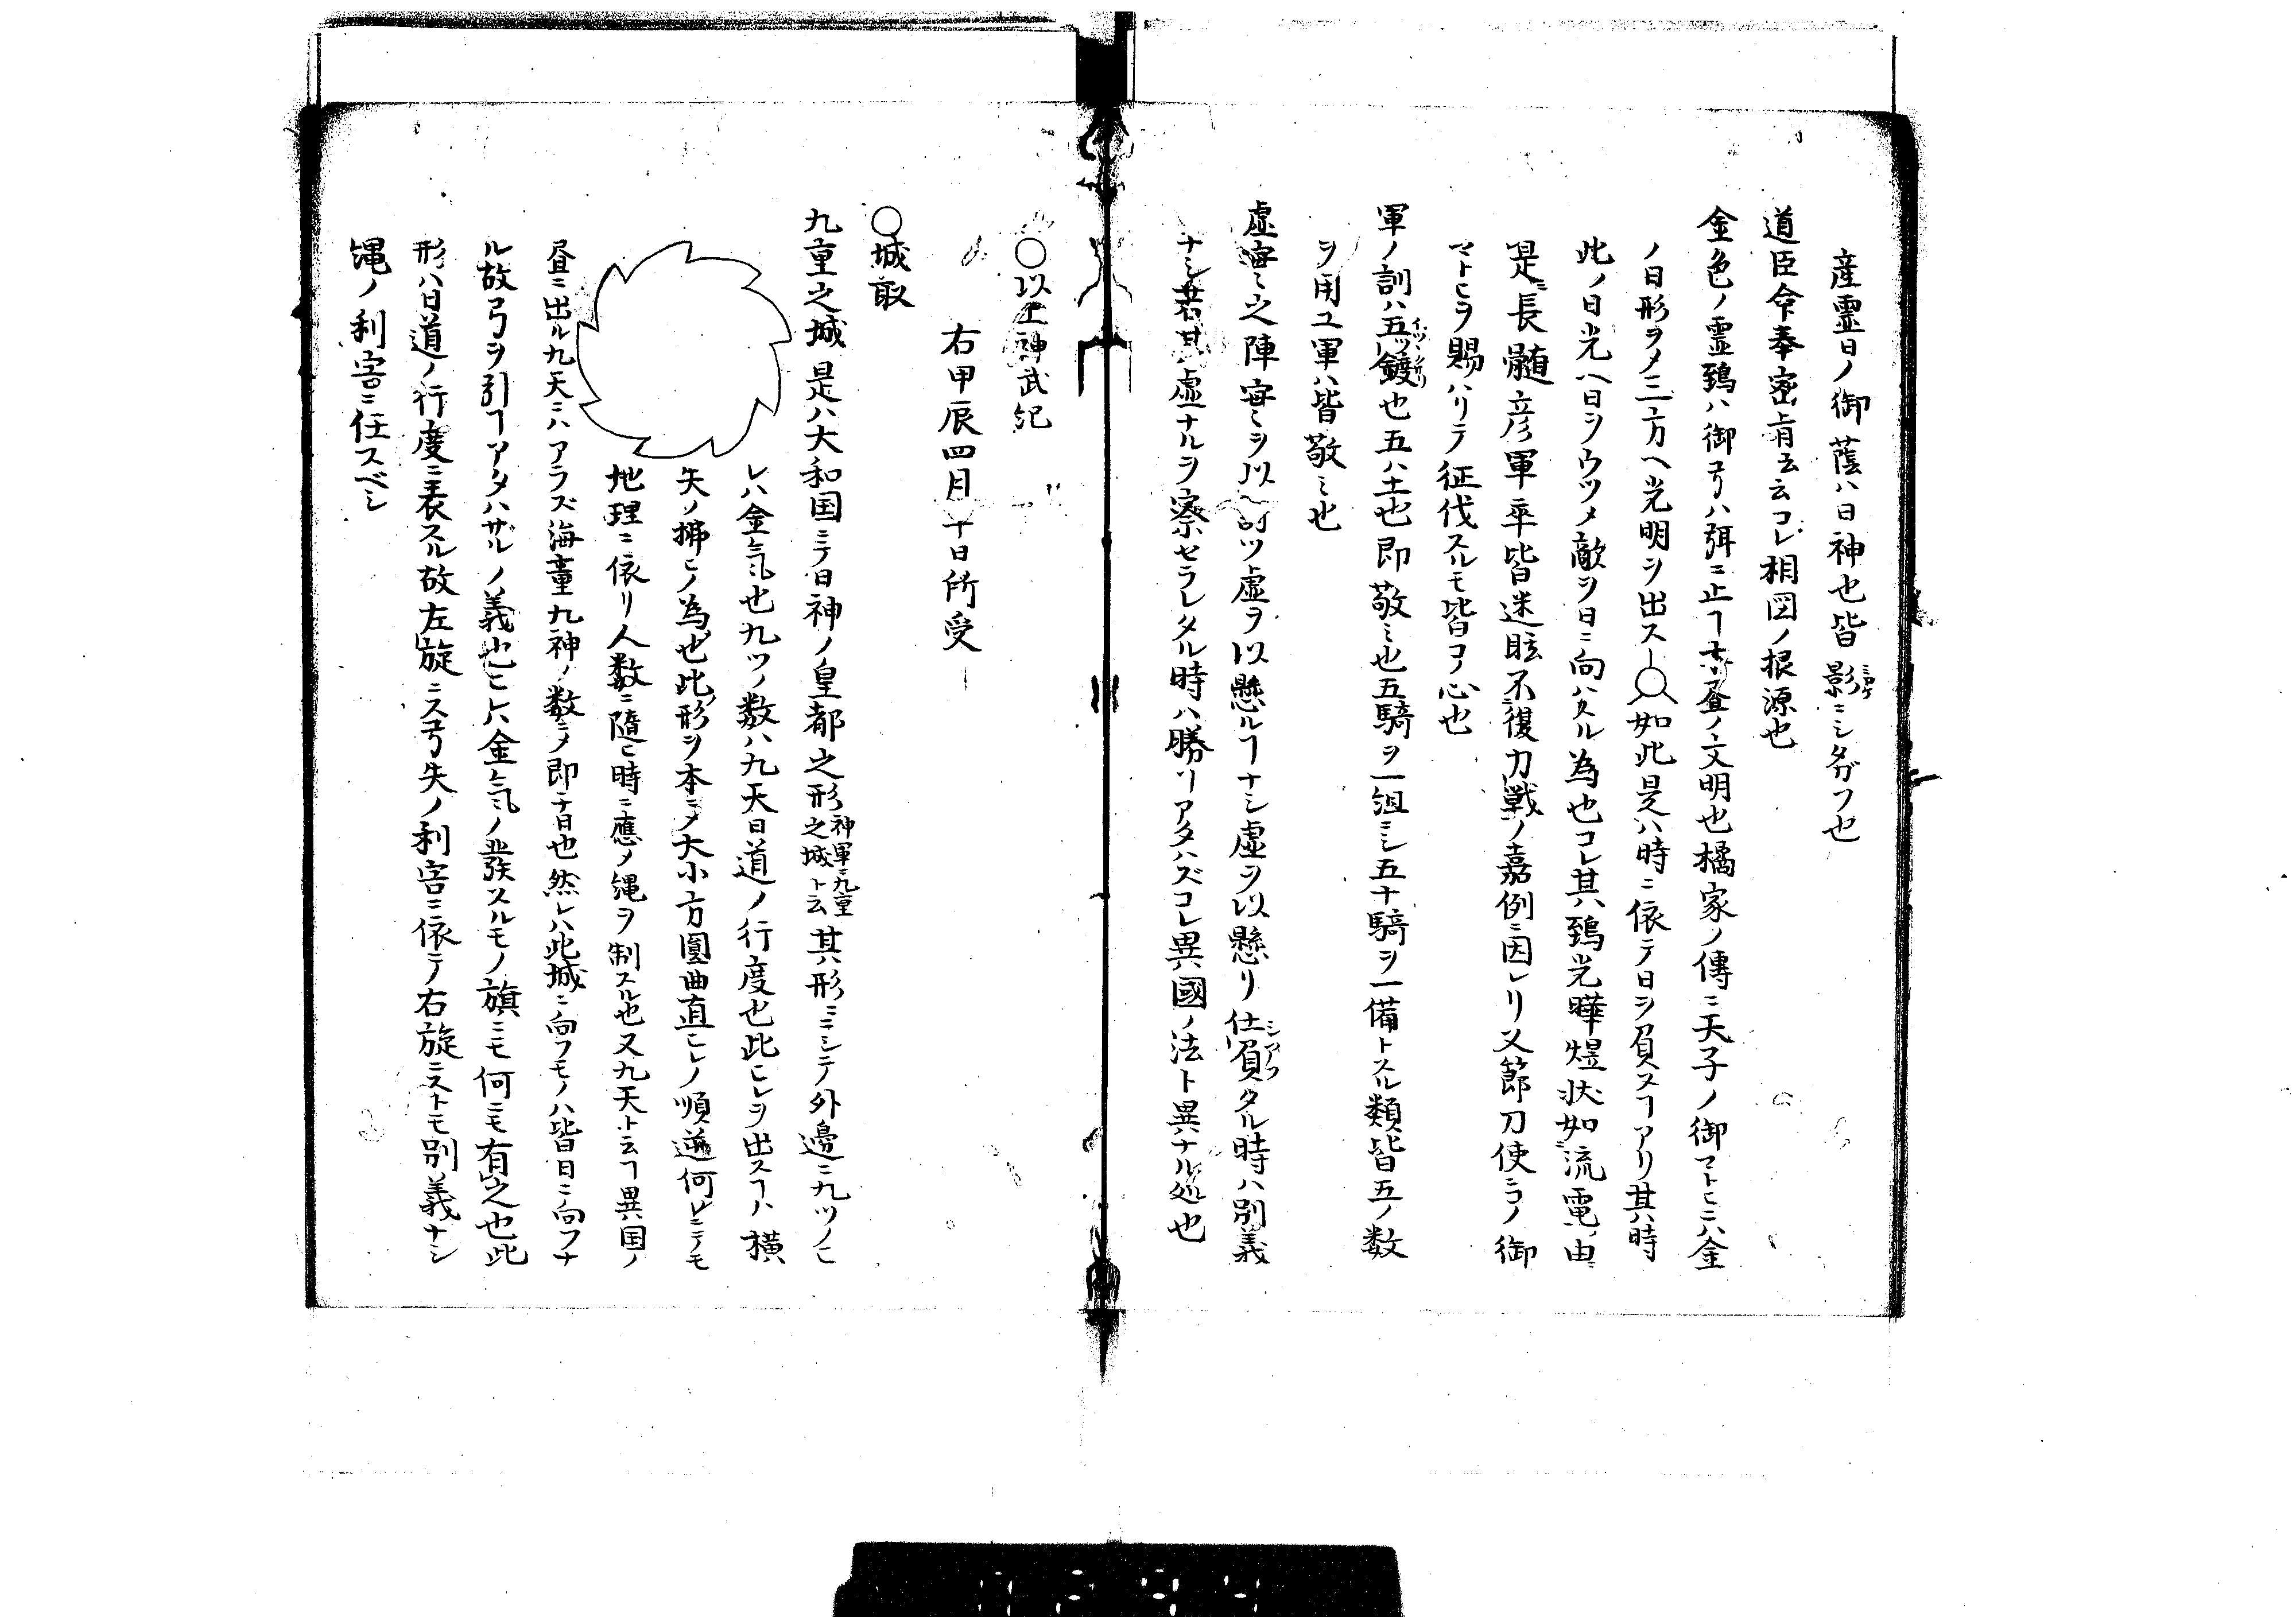 産霊日ノ御蔭ハ日神也皆影ミカゲニシタガフ也
道臣命奉密旨云云コレ相図ノ根源也
金色ノ霊鵄ハ御弓ハ弭ニ止ヿ ノ文明也橘家ノ傳ニ天子ノ御マトヒニハ金
ノ日形ヲメ三方ヘ光明ヲ出ス 如此是ハ時ニ依テ日ヲ負スヿアリ其時
此ノ日光ヘ日ヲウツメ敵ヲ日ニ向ハスル為也コレ其鵄光曄煜状如流電由
是長髄彦軍卒皆迷眩不復力戦ノ嘉例ニ因レリ又節刀使ニコノ御
マトヒヲ賜ハリテ征伐スルモ皆コノ心也
軍ノ訓ハ五ツ鏃也五ハ土也即敬ミ也五騎ヲ一組ニシ五十騎ヲ一備トスル類皆五ノ数
ヲ用ユ軍ハ皆敬ミ也
虚実之陣実ヲ以テ討ツ虚ヲ以懸ルヿナシ虚ヲ以懸リ仕負タル時ハ別義
ナシ若其虚ナルヲ察セラレタル時ハ勝リアタハズコレ異國ノ法ト異ナル処也
〇以上神武紀
右甲辰四月十日所受
〇城取
九重之城是ハ大和国ニテ日神ノ皇都之形神軍ニ九重之城ト云其形ニシテ外邊ニ九ツノヒ
レハ金気也九ツノ数ハ九天日道ノ行度也此ヒレヲ出スヿハ横
矢ノ拂ヒノ為也此形ヲ本ニメ大小方圓曲直ヒレノ順逆何レニテモ
地理ニ依リ人数ニ隨ヒ時ニ應メ縄ヲ制スル也又九天ト云ヿ異国ノ
昼ニ出ル九天ニハアラズ海童九神ノ数ニメ即十日也然レハ此城ニ向フモノハ皆日ニ向フナ
ル故弓ヲ引ヿアタハザルノ義也ヒレハ金気ノ發スルモノ旗ニモ何ニモ有之也此
形ハ日道ノ行度ニ表スル故左旋ニス弓矢ノ利害ニ依テ右旋ニストモ別義ナシ
縄ノ利害ニ任スベシ